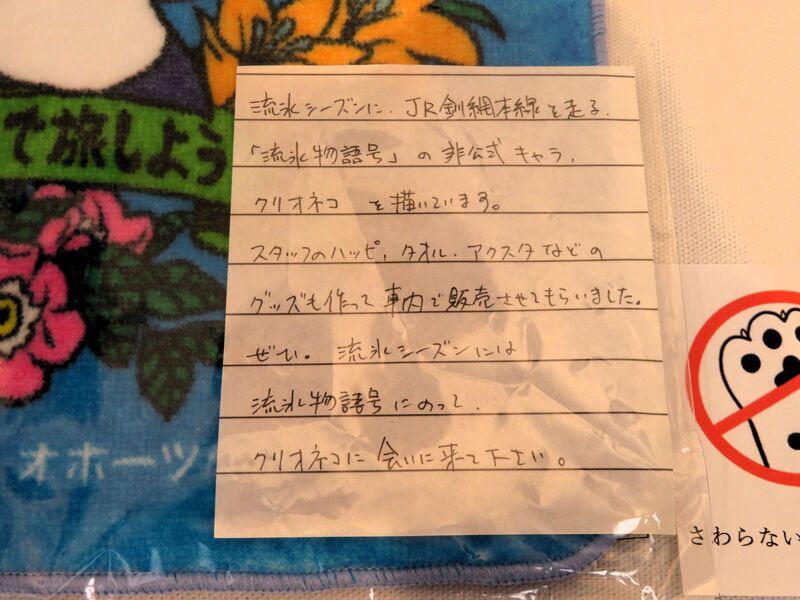 で旅しよう
オホーツ
流氷シーズンに、JR釧網本線を走る、
「流氷物語号」の非公式キャラ、
クリオネコ を描いています。
スタッフのハッピ、タオル、アクスタなどの
グッズも作って車内で販売させてもらいました。
ぜひ。流氷シーズンには
流氷物語号にのって、
クリオネコに会いに来て下さい。
さわらない